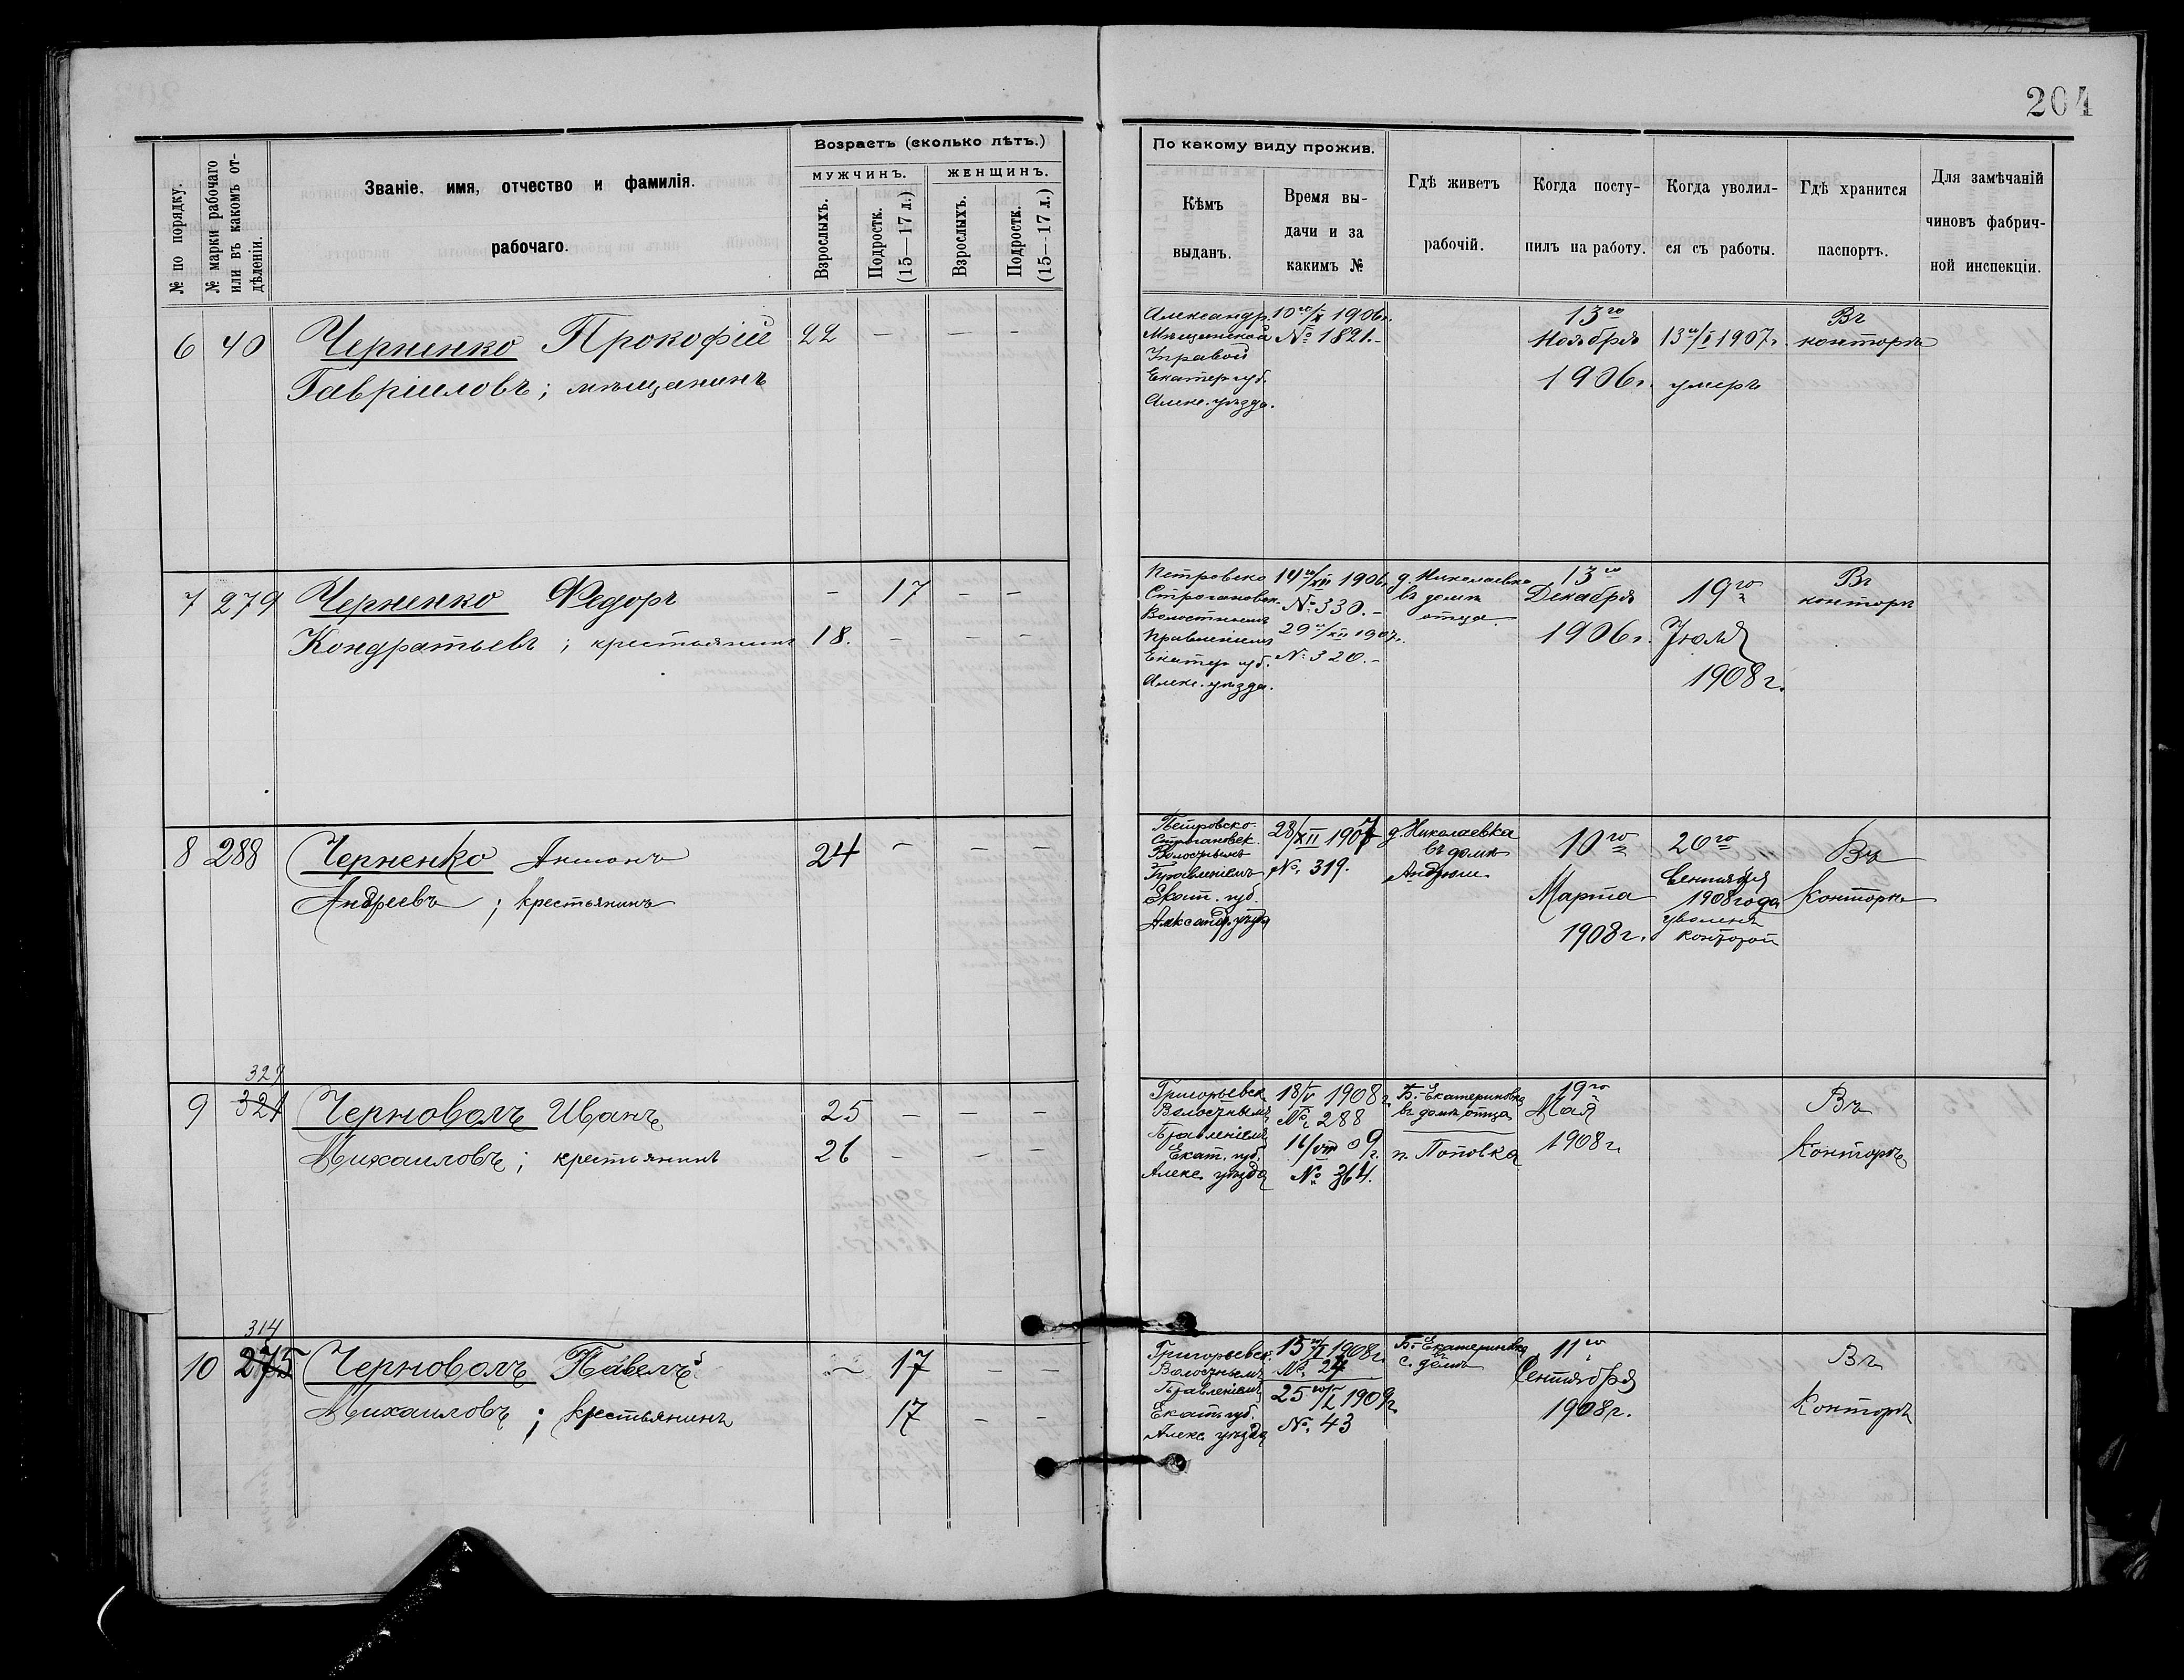 204
№ по порядку.
№ марки рабочаго
или въ какомъ от-
дѣленіи.
Званіе, имя, отчество и фамилія.
рабочаго.
Возрастъ (сколько лѣтъ.)
мужчинъ.
женщинъ.
Взрослыхъ.
Подростк.
(15—17 л.)
Взрослыхъ.
Подростк.
(15—17 л.)
По какому виду прожив.
Кѣмъ
выданъ.
Время вы-
дачи и за
какимъ №
Гдѣ живетъ
рабочій.
Когда посту-
пилъ на работу.
Когда уволил-
ся съ работы.
Гдѣ хранится
паспортъ.
Для замѣчаній
чиновъ фабрич-
ной инспекціи.
6 40 Черненко Прокофій 22 — — —
Гавріиловъ; мѣщанинъ
Александр.
Мѣщанской
Управой
Екатер. губ.
Алекс. уѣзда.
10го/X 1906г.
№ 1821.-
13го
Ноября
1906г.
13го/I 1907г.
умеръ
Въ
конторѣ
7 279 Черненко Федоръ — 17 — —
Кондратьевъ; крестьянинъ 18. — — —
Петровско
Строгановск.
Волостнымъ
Правленіемъ
Екатер. губ.
Алекс. уѣзда.
14го/XII 1906г.
№ 330.-
29го/XII 1907г.
№ 320.-
д. Николаевка
въ домѣ
отца
13го
Декабря
1906г.
19го
Іюля
1908г.
Въ
конторѣ
8 288 Черненко Антонъ 24 — — —
Андреевъ; крестьянинъ
Петровско-
Строгановск.
Волостнымъ
Правленіемъ
Екат. губ.
Александ. уѣзда
28/XII 1907
№ 319.
д. Николаевка
въ домѣ
10го
Марта
1908г.
20го
Сентября
1908 года
уволенъ
конторой
Въ
Конторѣ
329
9 324 Черноволъ Иванъ 25 — — —
Михаиловъ; крестьянинъ 26 — — —
Григорьевск.
Волостнымъ
Правленіемъ
Екат. губ.
Алекс. уѣзда
18/V 1908г.
№ 288
16/VIII 09г.
№ 364.
Б.-Екатериновка
въ домѣ отца
п. Поповка
19го
Мая
1908г.
Въ
Конторѣ
314
10 275 Черноволъ Павелъ — 17 — —
Михаиловъ; крестьянинъ 17 — —
Григорьевск.
Волостнымъ
Правленіемъ
Екат. губ.
Алекс. уѣзда
15го/I 1908г.
№ 24
25го/I 1909г.
№ 43
Б.-Екатериновка
въ
с. домѣ
11го
Сентября
1908г.
Въ
Конторѣ